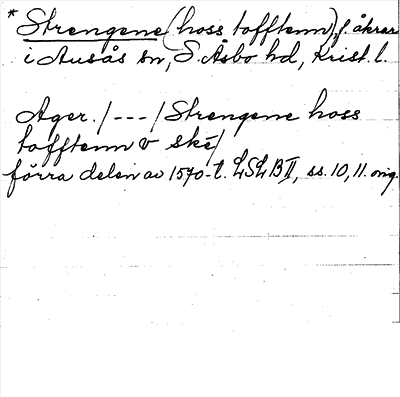 * Strengene (hoss tofftenn), f. åkrar
i Ausås sn, S. Åsbo hd, Krist. l.
Ager. /---/ Strengene hoss
tofftenn v ské/
förra delen av 1570-t. LSLB II, ss. 10, 11. orig.